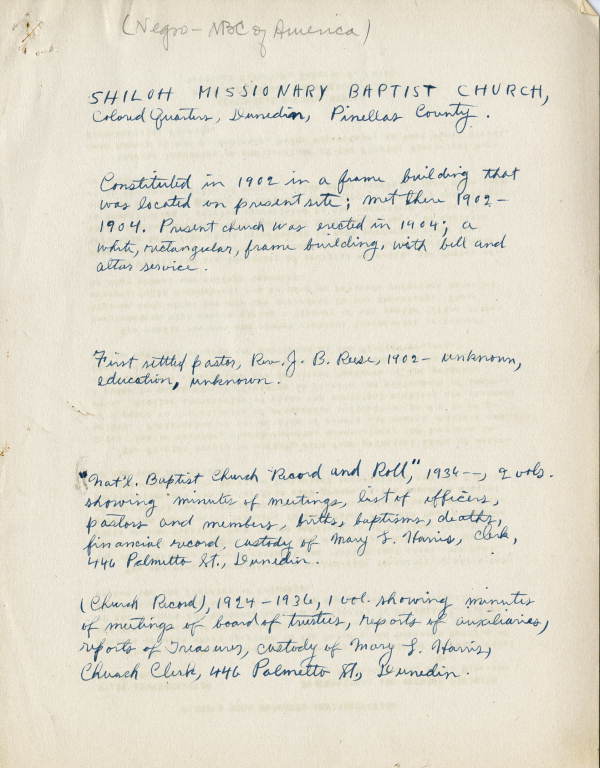 (Negro - NBC of America)
SHILOH MISSIONARY BAPTIST CHURCH,
Colored Quarters, Dunedin, Pinellas County.
Constituted in 1902 in a frame building that
was located on present site; met there 1902-
1904. Present church was erected in 1904; a
white, rectangular, frame building, with bell and
altar service.
First settled pastor, Rev. J. B. Reese, 1902- unknown,
education, unknown.
"Nat'l. Baptist Church Record and Roll," 1936--, 2 vols.
showing minutes of meetings, list of officers,
pastors and members, births, baptisms, deaths,
financial record, custody of Mary L. Harris, Clerk,
446 Palmetto St., Dunedin.
(Church Record), 1924-1936, 1 vol. showing minutes
of meetings of board of trustees, reports of auxiliaries,
reports of Treasurer, custody of Mary L. Harris,
Church Clerk, 446 Palmetto St., Dunedin.